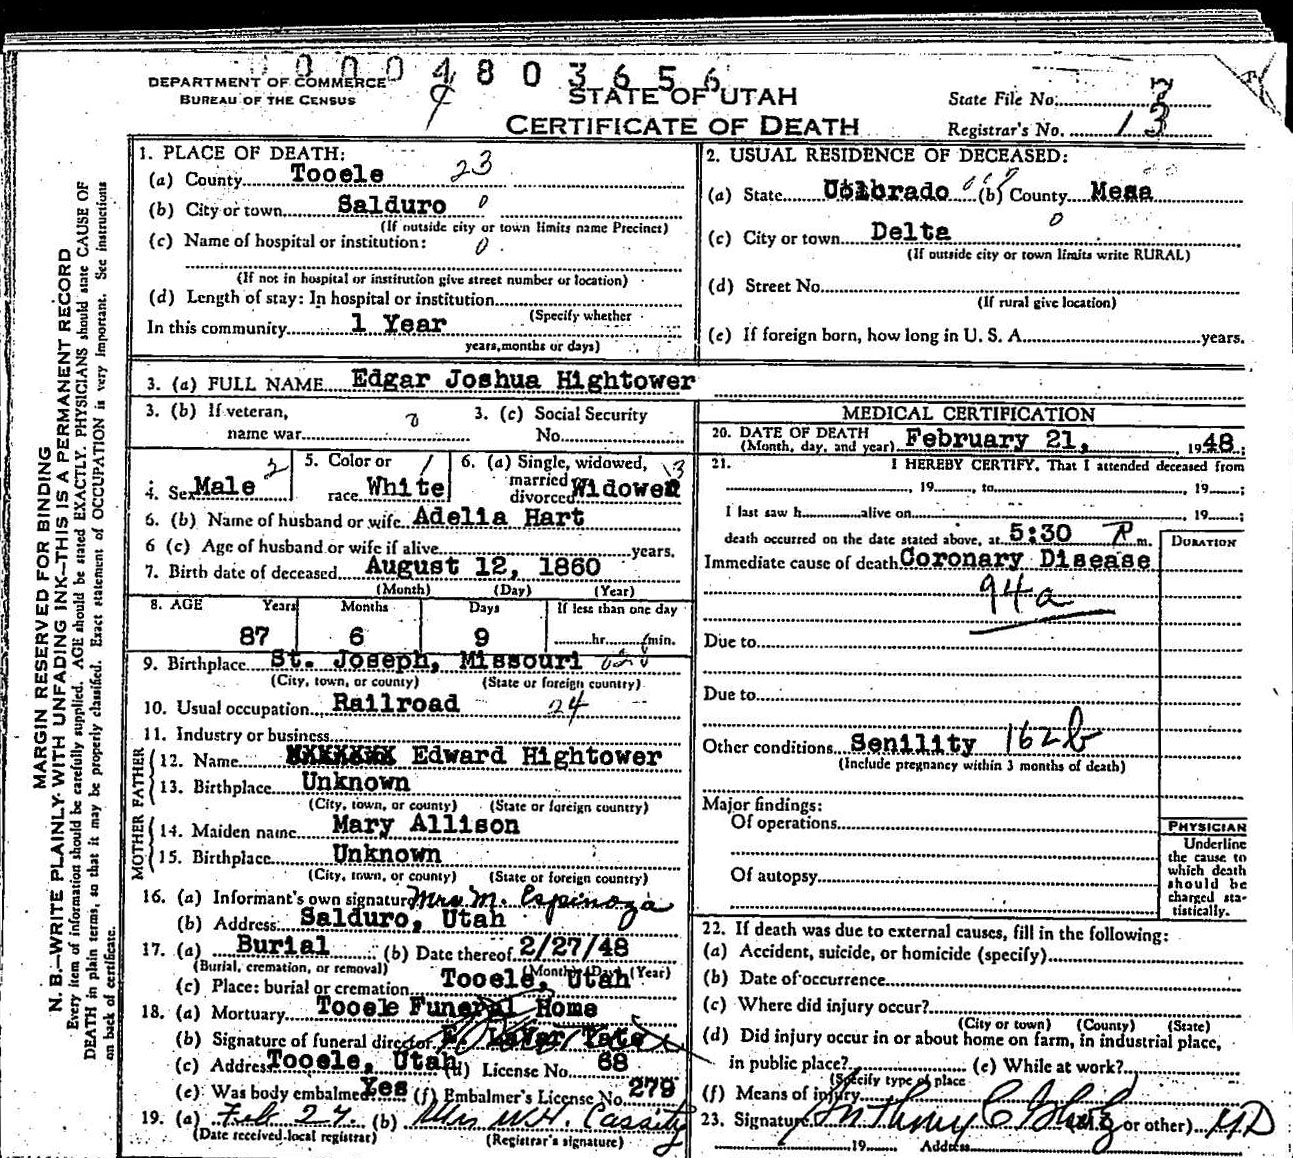 0004803656
DEPARTMENT OF COMMERCE
BUREAU OF THE CENSUS
STATE OF UTAH
CERTIFICATE OF DEATH
State File No.
Registrar's No. 13
MARGIN RESERVED FOR BINDING
N. B.—WRITE PLAINLY WITH UNFADING INK—THIS IS A PERMANENT RECORD
Every item of information should be carefully supplied. AGE should be stated EXACTLY. PHYSICIANS should state CAUSE OF
DEATH in plain terms, so that it may be properly classified. Exact statement of OCCUPATION is very important. See instructions
on back of certificate.
1. PLACE OF DEATH:
(a) County Tooele 23
(b) City or town Salduro 0
(If outside city or town limits name Precinct)
(c) Name of hospital or institution: 0
(If not in hospital or institution give street number or location)
(d) Length of stay: In hospital or institution
(Specify whether
In this community 1 Year
years, months or days)
2. USUAL RESIDENCE OF DECEASED:
(a) State Colorado (b) County Mesa
(c) City or town Delta 0
(If outside city or town limits write RURAL)
(d) Street No.
(If rural give location)
(e) If foreign born, how long in U. S. A. years.
3. (a) FULL NAME Edgar Joshua Hightower
3. (b) If veteran,
name war
3. (c) Social Security
No.
4. Sex Male 2
5. Color or
race White 1
6. (a) Single, widowed,
married
divorced Widower 3
6. (b) Name of husband or wife Adelia Hart
6 (c) Age of husband or wife if alive years.
7. Birth date of deceased August 12, 1860
(Month) (Day) (Year)
8. AGE Years Months Days If less than one day
87 6 9 hr. min.
9. Birthplace St. Joseph, Missouri
(City, town, or county) (State or foreign country)
10. Usual occupation Railroad 24
11. Industry or business
FATHER
12. Name Edward Hightower
13. Birthplace Unknown
(City, town, or county) (State or foreign country)
MOTHER
14. Maiden name Mary Allison
15. Birthplace Unknown
(City, town, or county) (State or foreign country)
16. (a) Informant's own signature Mrs M. Espinoza
(b) Address Salduro, Utah
17. (a) Burial (b) Date thereof 2/27/48
(Burial, cremation, or removal) (Month) (Day) (Year)
(c) Place: burial or cremation Tooele, Utah
18. (a) Mortuary Tooele Funeral Home
(b) Signature of funeral director F. LaVar Tate
(c) Address Tooele, Utah (d) License No. 68
(e) Was body embalmed Yes (f) Embalmer's License No. 279
19. (a) Feb 27 (b) Mrs W.H. Cassity
(Date received local registrar) (Registrar's signature)
MEDICAL CERTIFICATION
20. DATE OF DEATH
(Month, day, and year) February 21, 1948;
21. I HEREBY CERTIFY, That I attended deceased from
, 19 , to , 19 ;
I last saw h alive on , 19 ;
death occurred on the date stated above, at 5:30 P. m.
DURATION
Immediate cause of death Coronary Disease
94a
Due to
Due to
Other conditions Senility 162b
(Include pregnancy within 3 months of death)
Major findings:
Of operations
Of autopsy
PHYSICIAN
Underline
the cause to
which death
should be
charged sta-
tistically.
22. If death was due to external causes, fill in the following:
(a) Accident, suicide, or homicide (specify)
(b) Date of occurrence
(c) Where did injury occur?
(City or town) (County) (State)
(d) Did injury occur in or about home on farm, in industrial place,
in public place? (e) While at work?
(Specify type of place
(f) Means of injury
23. Signature Anthony C or other) MD
19 Address